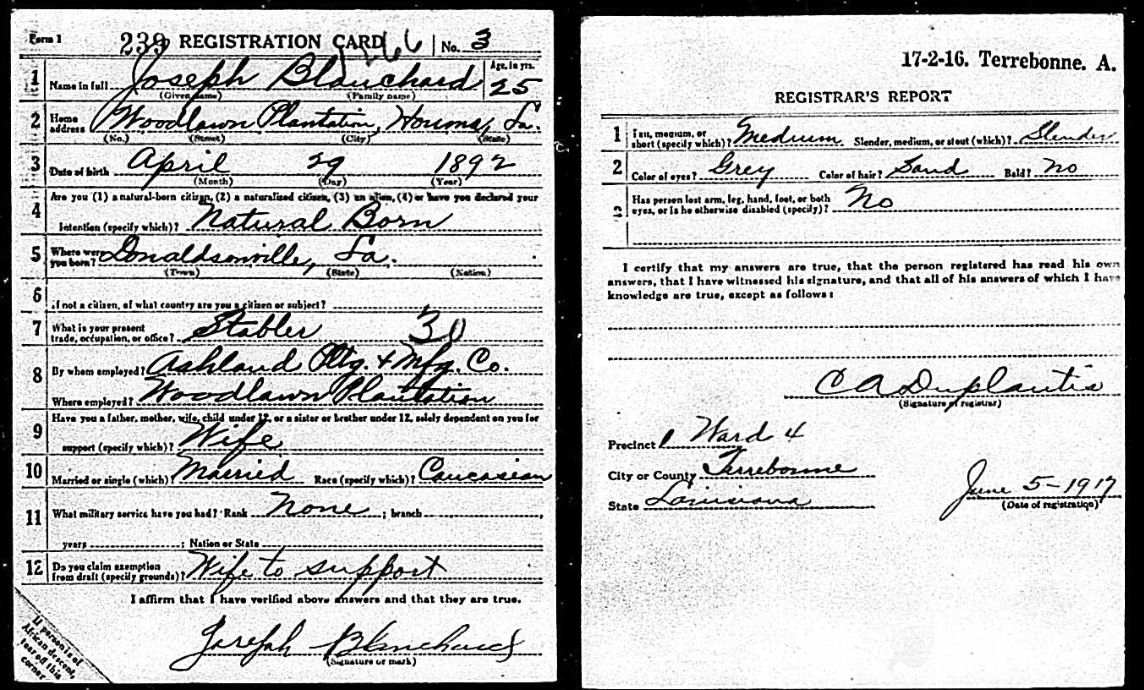 Form 1 239 REGISTRATION CARD 66 No. 3
1 Name in full Joseph Blanchard Age, in yrs. 25
(Given name) (Family name)
2 Home address Woodlawn Plantation, Houma, La.
(No.) (Street) (City) (State)
3 Date of birth April 29 1892
(Month) (Day) (Year)
4 Are you (1) a natural-born citizen, (2) a naturalized citizen, (3) an alien, (4) or have you declared your
intention (specify which)? Natural Born
5 Where were you born? Donaldsonville, La.
(Town) (State) (Nation)
6 if not a citizen, of what country are you a citizen or subject?
7 What is your present trade, occupation, or office? Stabler 30
8 By whom employed? Ashland Pltg. & Mfg. Co.
Where employed? Woodlawn Plantation
9 Have you a father, mother, wife, child under 12, or a sister or brother under 12, solely dependent on you for
support (specify which)? Wife
10 Married or single (which)? Married Race (specify which)? Caucasian
11 What military service have you had? Rank None ; branch ,
years ; Nation or State
12 Do you claim exemption from draft (specify grounds)? Wife to support
I affirm that I have verified above answers and that they are true.
Joseph Blanchard
(Signature or mark)
If person is of
African descent,
tear off this
corner
17-2-16. Terrebonne. A.
REGISTRAR'S REPORT
1 Tall, medium, or short (specify which)? Medium Slender, medium, or stout (which)? Slender
2 Color of eyes? Grey Color of hair? Sand Bald? No
3 Has person lost arm, leg, hand, foot, or both
eyes, or is he otherwise disabled (specify)? No
I certify that my answers are true, that the person registered has read his own
answers, that I have witnessed his signature, and that all of his answers of which I have
knowledge are true, except as follows:
C A Duplantis
(Signature of registrar)
Precinct 1 Ward 4
City or County Terrebonne
State Louisiana
June 5-1917
(Date of registration)